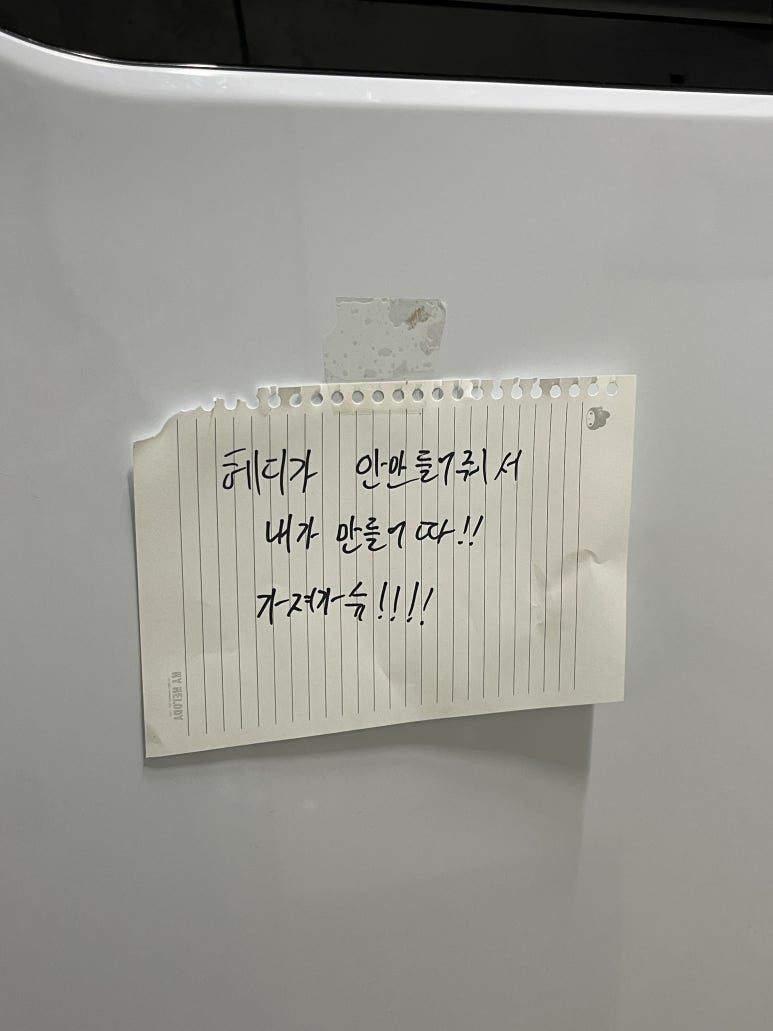 헤디가 안만들어줘서
내가 만들어따!!
가져가슈!!!!
MY MELODY